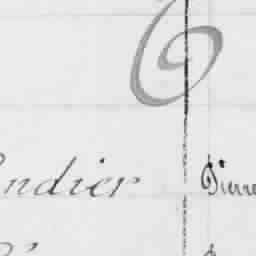 6
ndier Pierre